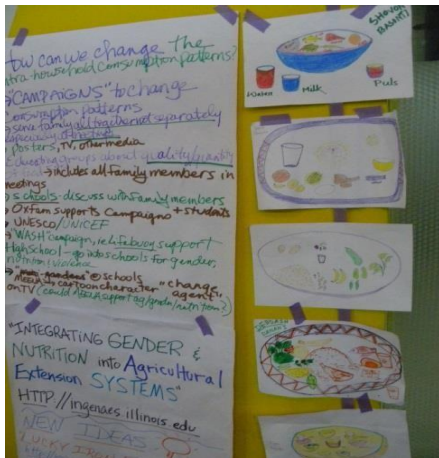 How can we change the
intra-household consumption patterns?
"CAMPAIGNS" to change
consumption patterns
serve family all together not separately
especially at meetings
posters, TV, other media
Educating groups about quality/quantity
of food → includes all family members in
meetings
schools - discuss with family members
Oxfam supports campaigns + students
UNESCO/UNICEF
"WASH" campaign, support
High school - go into schools for gender,
nutrition
"mini-gardens" @ schools
MEENA cartoon character "change
agent"
on TV (could MEENA support ag/gender/nutrition?)
"INTEGRATING GENDER &
NUTRITION into Agricultural
Extension SYSTEMS"
HTTP://ingenaes.illinois.edu
NEW IDEAS
LUCKY IRON
Water
Milk
Puls